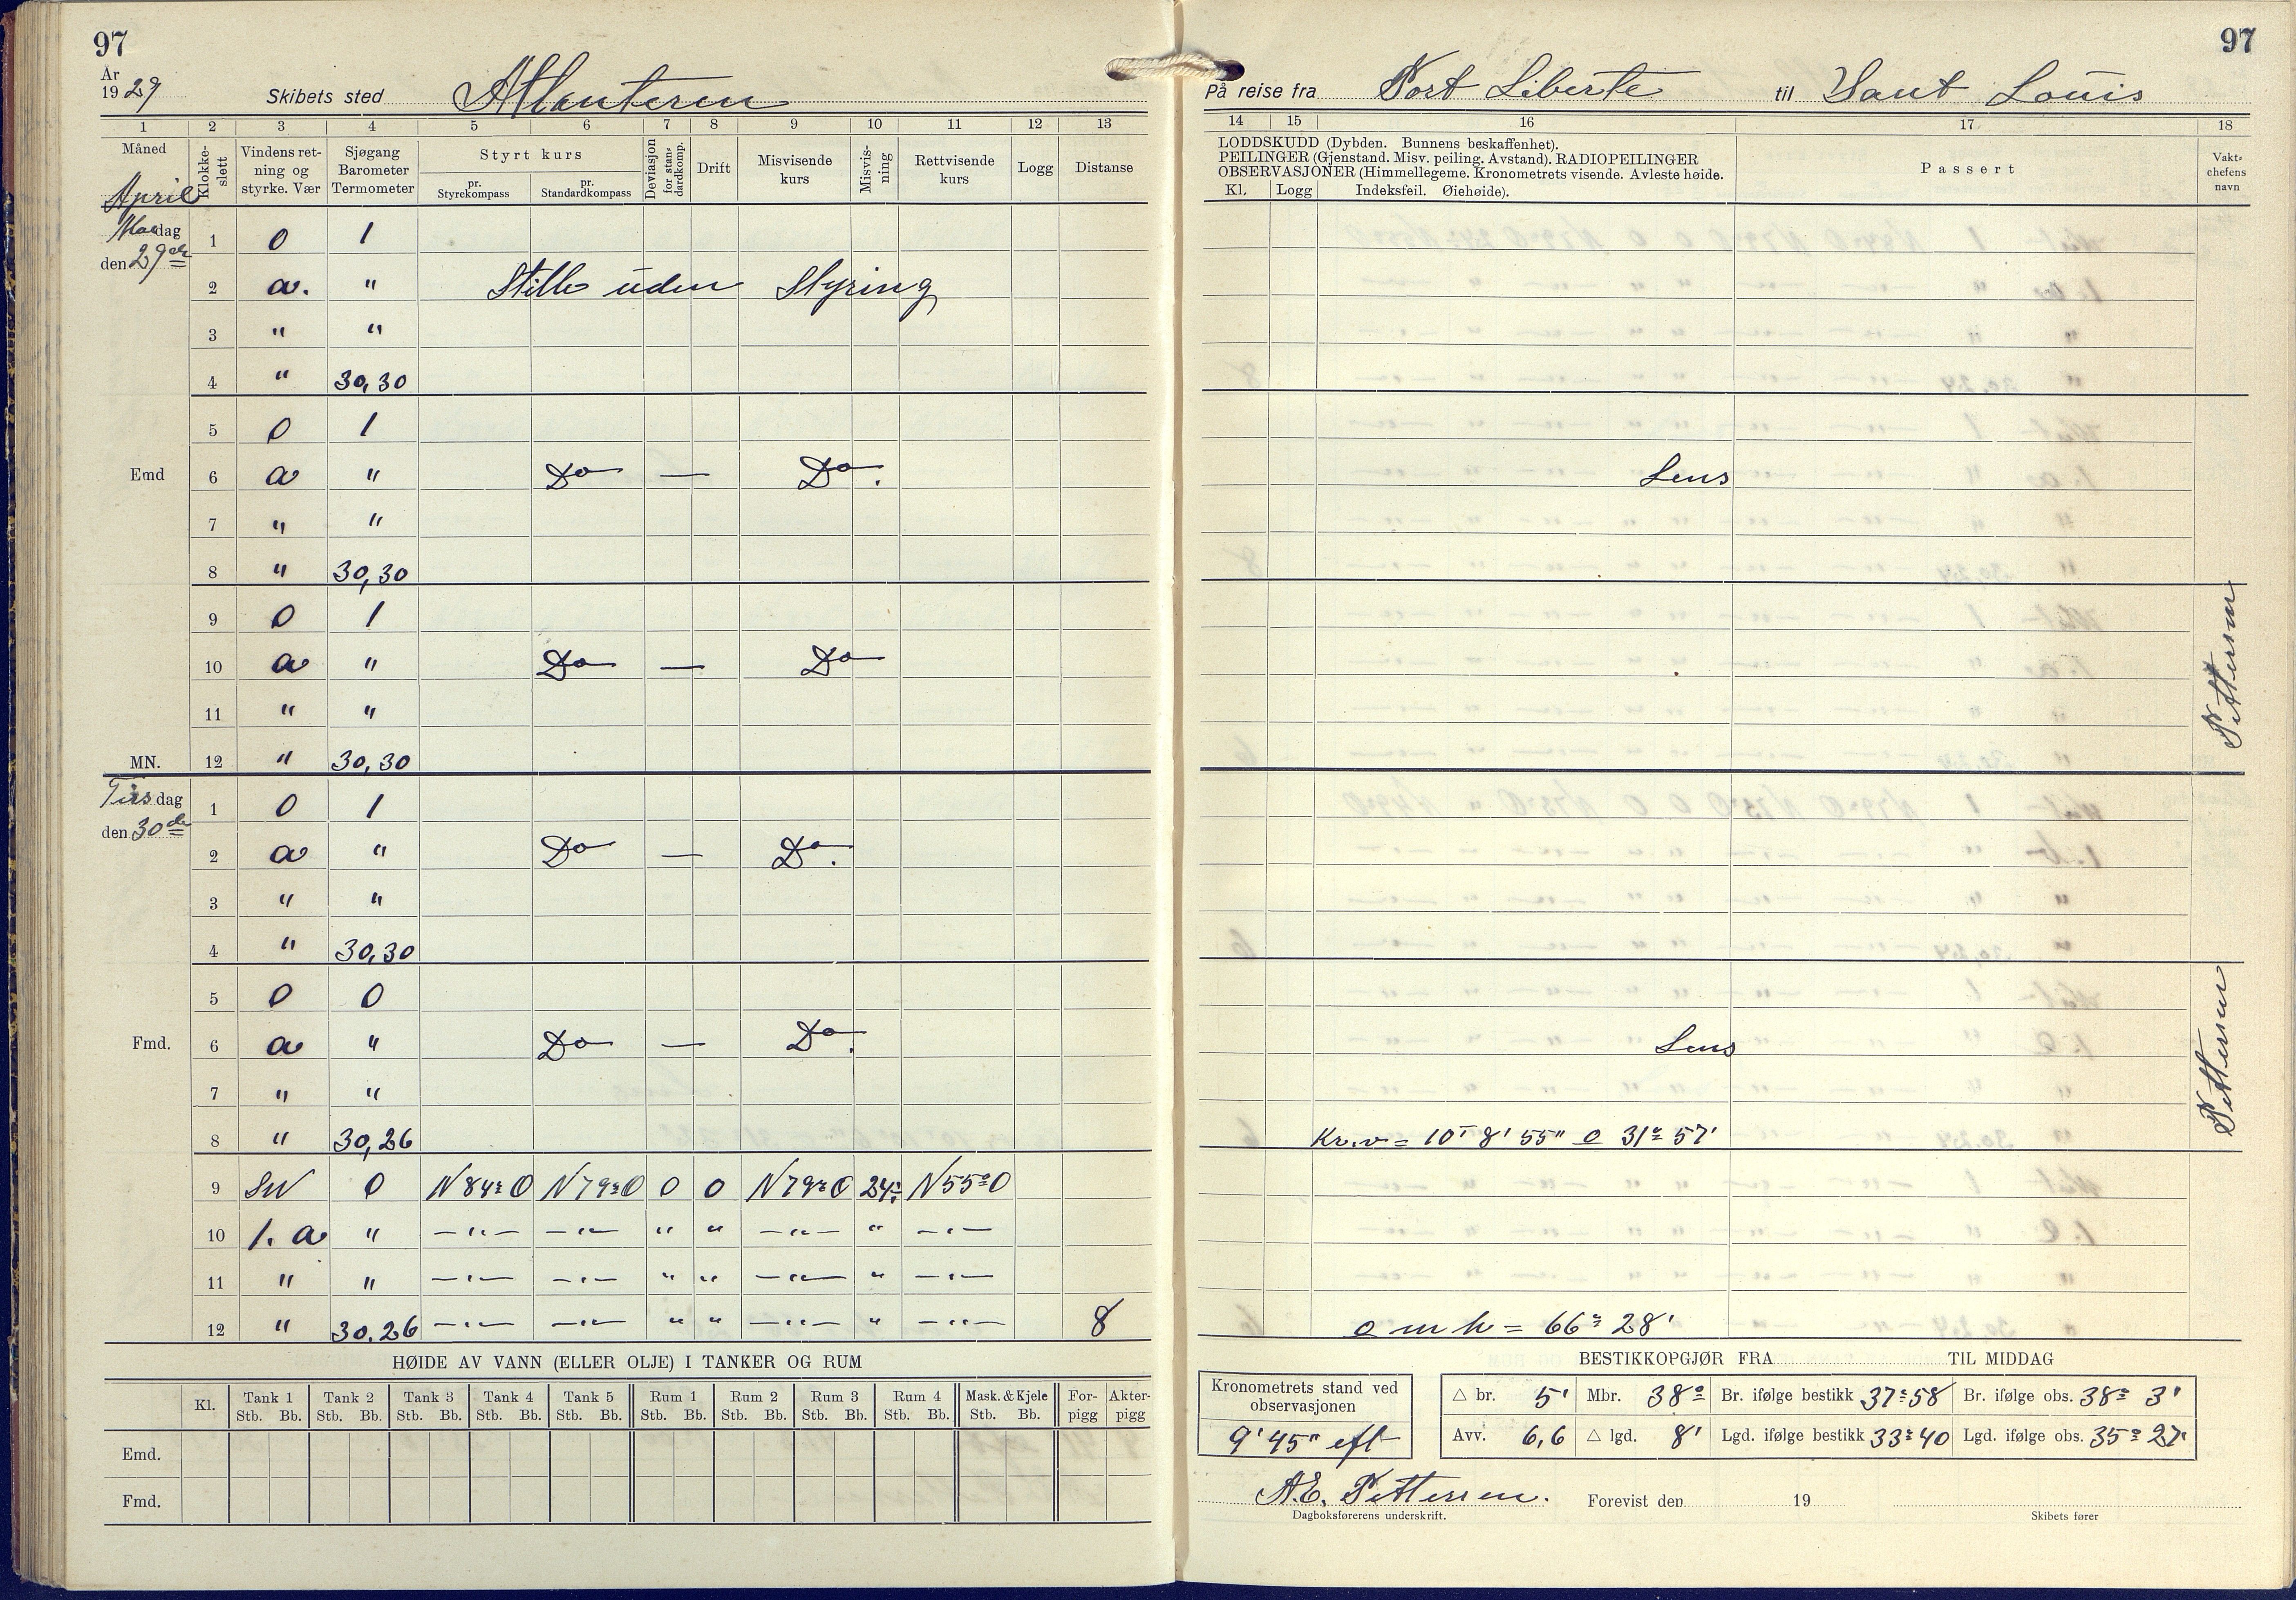 97
97
År
1929
Skibets sted Atlanteren
På reise fra Port Liberte til Sant Louis
1 2 3 4 5 6 7 8 9 10 11 12 13
14 15 16 17 18
Måned
April
Klokke-
slett
Vindens ret-
ning og
styrke. Vær
Sjøgang
Barometer
Termometer
Styrt kurs
pr.
Styrekompass
pr.
Standardkompass
Deviasjon
for stan-
dardkomp.
Drift
Misvisende
kurs
Misvis-
ning
Rettvisende
kurs
Logg
Distanse
LODDSKUDD (Dybden. Bunnens beskaffenhet).
PEILINGER (Gjenstand. Misv. peiling. Avstand). RADIOPEILINGER
OBSERVASJONER (Himmellegeme. Kronometrets visende. Avleste høide.
Kl. Logg Indeksfeil. Øiehøide).
Passert
Vakt-
chefens
navn
Mandag
den 29de
1 0 1
2 a. " Stille uden Styring
3 " "
4 " 30,30
5 0 1
Emd 6 a " Do — Do.
Lens
7 " "
8 " 30,30
9 0 1
10 a " Do — Do
11 " "
MN. 12 " 30,30
Pettersen
Tirsdag
den 30de
1 0 1
2 a " Do — Do.
3 " "
4 " 30,30
5 0 0
Fmd. 6 a " Do — Do.
Lens
7 " "
8 " 30,26
Kr.v = 10T 8' 55" o 31° 57'
Pettersen
9 SW 0 N84°O N79°O 0 0 N79°O 24° N55°O
10 1. a " —"— —"— " " —"— " —"—
11 " " —"— —"— " " —"— " —"—
12 " 30.26 —"— —"— " " —"— " —"— 8
o m h = 66° 28'
HØIDE AV VANN (ELLER OLJE) I TANKER OG RUM
Kl. Tank 1 Tank 2 Tank 3 Tank 4 Tank 5 Rum 1 Rum 2 Rum 3 Rum 4 Mask. & Kjele For- Akter-
Stb. Bb. Stb. Bb. Stb. Bb. Stb. Bb. Stb. Bb. Stb. Bb. Stb. Bb. Stb. Bb. Stb. Bb. Stb. Bb. pigg pigg
Emd.
Fmd.
BESTIKKOPGJØR FRA TIL MIDDAG
Kronometrets stand ved
observasjonen
9' 45" eft
△ br. 5' Mbr. 38° Br. ifølge bestikk 37°58 Br. ifølge obs. 38° 3'
Avv. 6,6 △ lgd. 8' Lgd. ifølge bestikk 33°40 Lgd. ifølge obs. 35° 27'
A.E. Pettersen.
Dagboksførerens underskrift.
Forevist den 19
Skibets fører